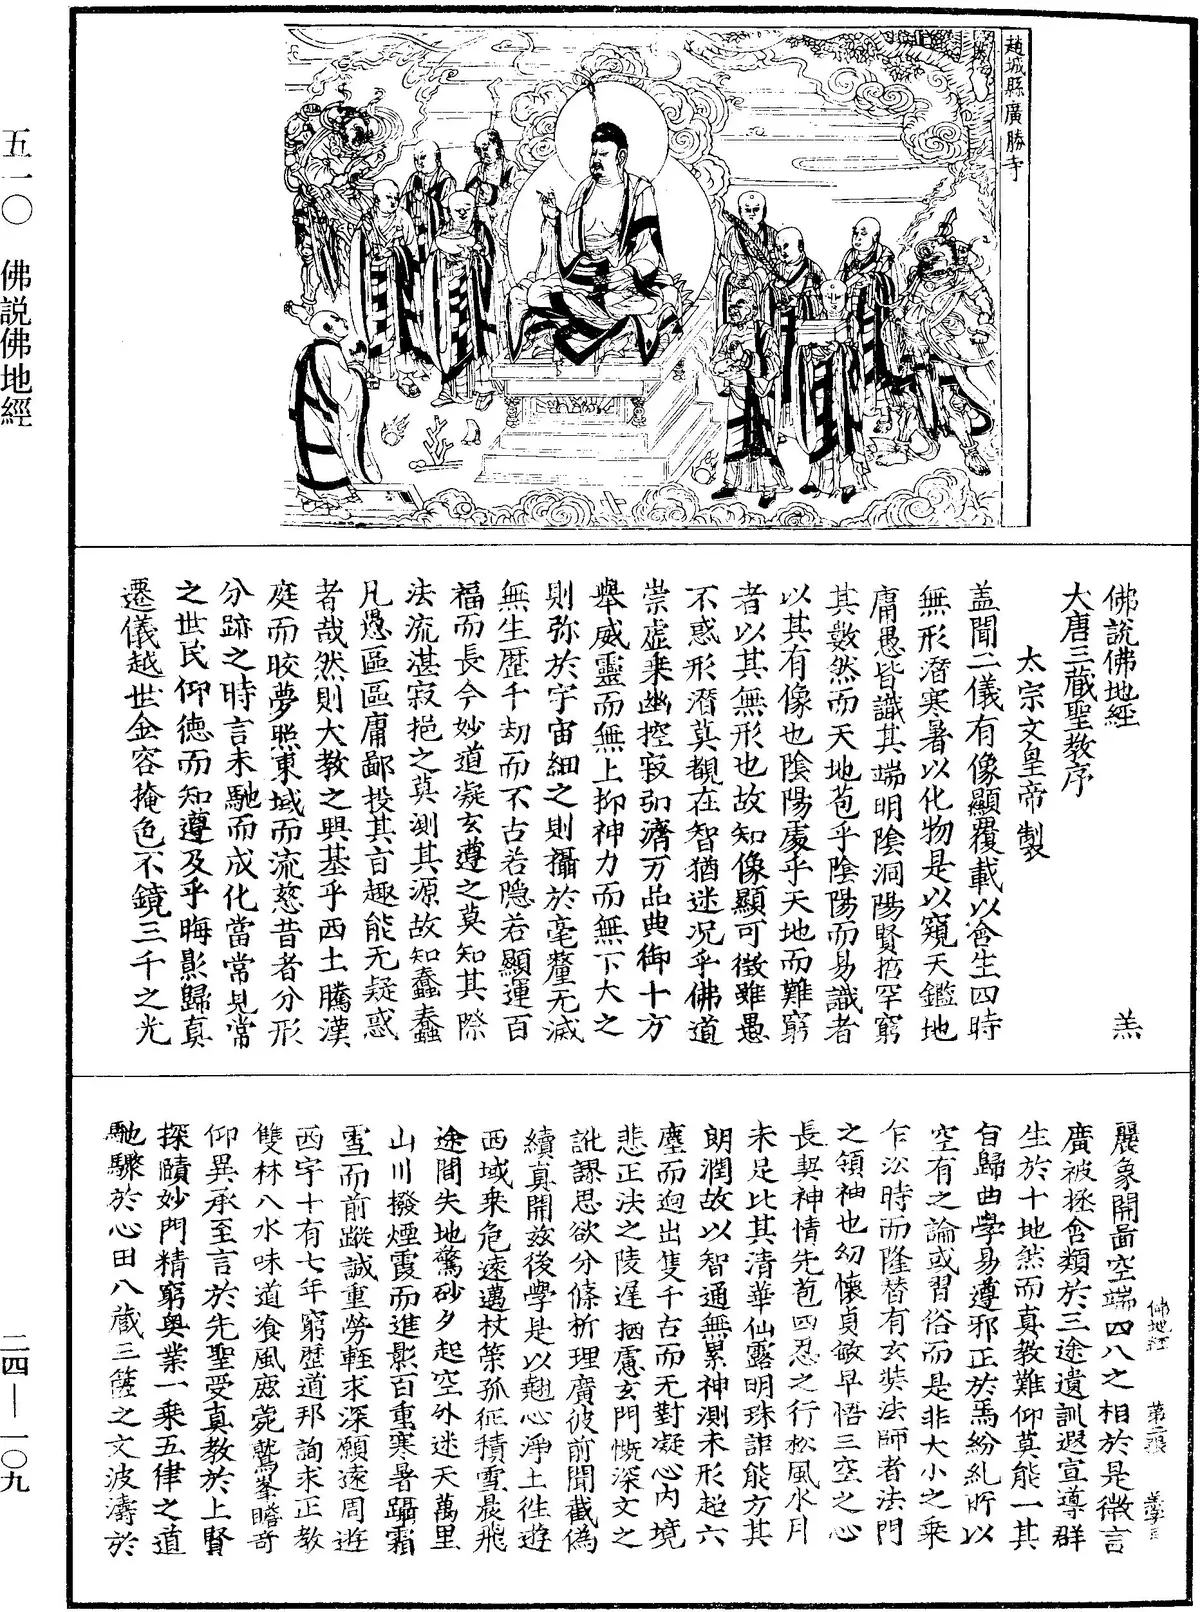 趙城縣廣勝寺
佛說佛地經 羔
大唐三藏聖教序
太宗文皇帝製
盖聞二儀有像顯覆載以含生四時
無形潛寒暑以化物是以窺天鑑地
庸愚皆識其端明陰洞陽賢哲罕窮
其數然而天地苞乎陰陽而易識者
以其有像也陰陽處乎天地而難窮
者以其無形也故知像顯可徵雖愚
不惑形潛莫覩在智猶迷况乎佛道
崇虛乘幽控寂弘濟万品典御十方
舉威靈而無上抑神力而無下大之
則弥於宇宙細之則攝於毫釐无滅
無生歷千劫而不古若隐若顯運百
福而長今妙道凝玄遵之莫知其際
法流湛寂挹之莫測其源故知蠢蠢
凡愚區區庸鄙投其旨趣能无疑惑
者哉然則大教之興基乎西土騰漢
庭而皎夢照東域而流慈昔者分形
分跡之時言未馳而成化當常見常
之世民仰德而知遵及乎晦影歸真
遷儀越世金容掩色不鏡三千之光
麗象開圖空端四八之相於是微言
廣被拯含類於三途遺訓遐宣導群
生於十地然而真教難仰莫能一其
旨歸曲學易遵邪正於焉紛糺所以
空有之論或習俗而是非大小之乘
乍㳂時而隆替有玄奘法師者法門
之領袖也幼懷貞敏早悟三空之心
長契神情先苞四忍之行松風水月
未足比其清華仙露明珠詎能方其
朗潤故以智通無累神測未形超六
塵而迥出隻千古而无對凝心內境
悲正法之陵遲栖慮玄門慨深文之
訛謬思欲分條析理廣彼前聞截偽
續真開兹後學是以翹心淨土往遊
西域乘危遠邁杖策孤征積雪晨飛
途間失地驚砂夕起空外迷天萬里
山川撥煙霞而進影百重寒暑躡霜
雪而前蹤誠重勞輕求深願遠周遊
西宇十有七年窮歷道邦詢求正教
雙林八水味道飡風鹿菀鷲峯瞻奇
仰異承至言於先聖受真教於上賢
探賾妙門精窮奧業一乘五律之道
馳驟於心田八藏三篋之文波濤於
佛地經 第二張 羔字号
五一〇 佛説佛地經
二四—一〇九